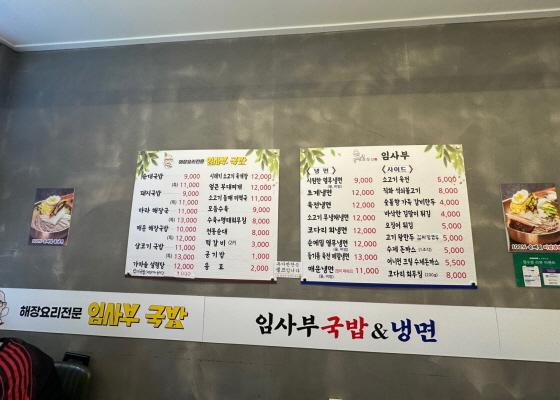 해장요리전문 임사부 국밥
순대국밥 9,000
(특) 11,000
돼지국밥 9,000
(특) 11,000
마라 해장국 11,000
(특) 13,000
매운 해장국 10,000
(특) 12,000
살코기 국밥 11,000
(특) 13,000
가마솥 설렁탕 12,000
시래기 소고기 육개장 12,000
얼큰 부대찌개 12,000
12,000
모듬수육 9,000
8,000
전통순대 8,000
떡갈비 3,000
공기밥 1,000
음료 2,000
임사부
<냉면>
시원한 열무냉면 9,000
(물, 비빔)
트게냉면 12,000
육전냉면 12,000
12,000
코다리 회냉면 12,000
순메밀 열무냉면 12,000
(물, 비빔)
들기름 육전 메밀냉면 13,000
매운냉면 11,000
(물, 비빔)
<사이드>
소고기 육전 12,000
직화 석쇠불고기 8,000
숯불향 가득 갈비만두 4,000
바삭한 김말이 튀김 4,000
오징어 튀김 5,000
고기 왕만두 5,000
수제 돈까스 5,500
어니언 크림 수제돈까스 5,500
코다리 회무침 (200g) 8,000
해장요리전문 임사부 국밥
임사부국밥&냉면